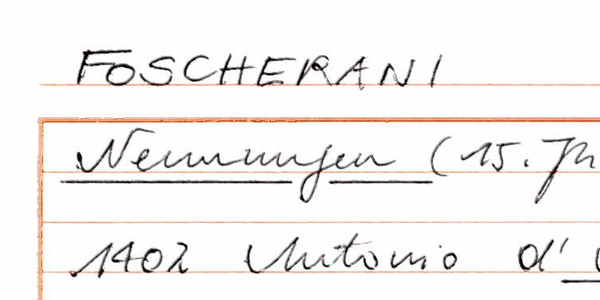 FOSCHERANI
Nennungen (15. Jh
1402 Antonio d'